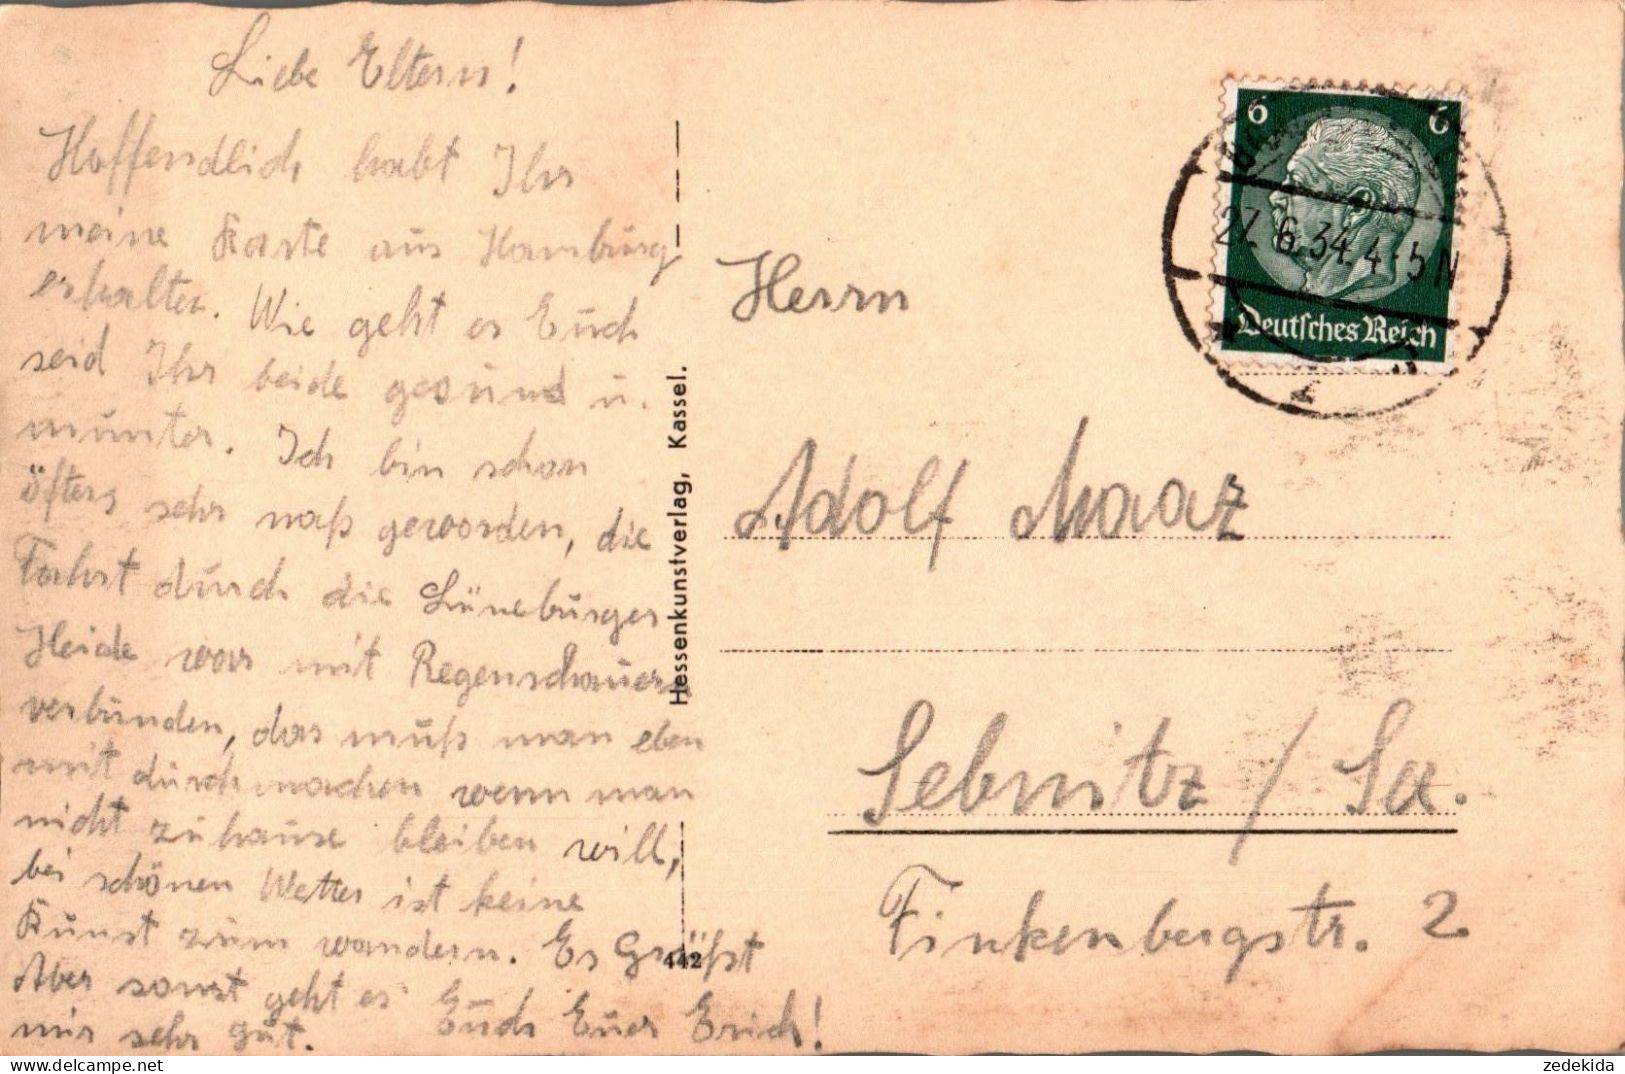 Liebe Eltern!
Hoffendlich habt Ihr
meine Karte aus Hamburg
erhalten. Wie geht es Euch
seid Ihr beide gesund u.
munter. Ich bin schon
öfters sehr naß geworden, die
Fahrt durch die Lüneburger
Heide war mit Regenschauern
verbunden, das muß man eben
mit durchmachen wenn man
nicht zu hause bleiben will,
bei schönen Wetter ist keine
Kunst zum wandern. Es Grüßt
Aber sonst geht es Euch Euer Erich!
mir sehr gut.
Hessenkunstverlag, Kassel.
442
6 6
27.6.34. 4-5 N
Deutsches Reich
Herrn
Adolf Maaz
Sebnitz / Sa.
Finkenbergstr. 2
zedekida